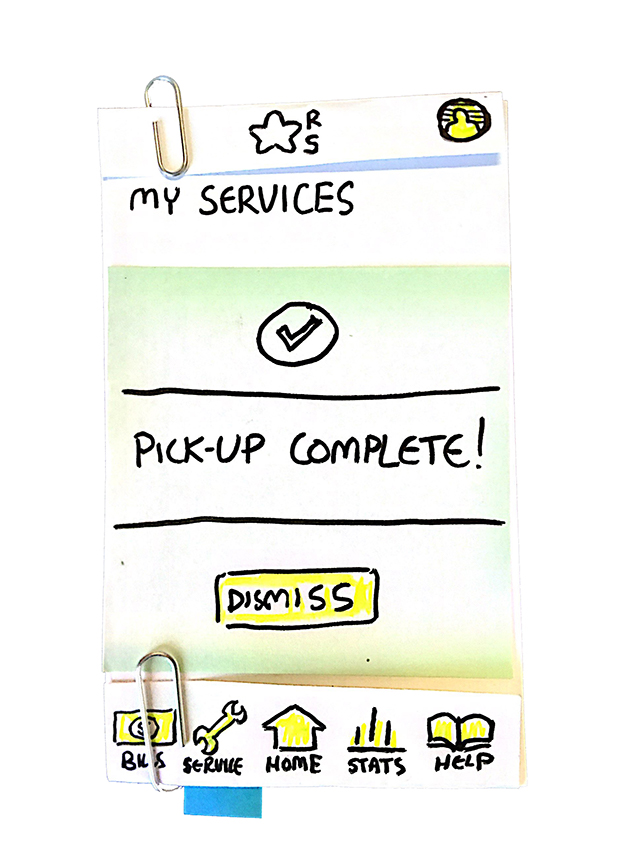 R
S
MY SERVICES
PICK-UP COMPLETE!
DISMISS
$
BILLS
SERVICE
HOME
STATS
HELP